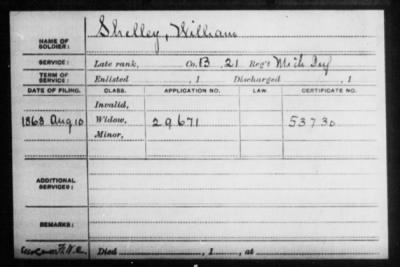 NAME OF SOLDIER: Shelley, William
SERVICE: Late rank, Co. B, 21 Reg't Mich Inf
TERM OF SERVICE: Enlisted , 1 Discharged , 1
DATE OF FILING. CLASS. APPLICATION NO. LAW. CERTIFICATE NO.
Invalid,
1863 Aug 10 Widow, 29671 53730
Minor,
ADDITIONAL SERVICES:
REMARKS:
Died , 1 , at